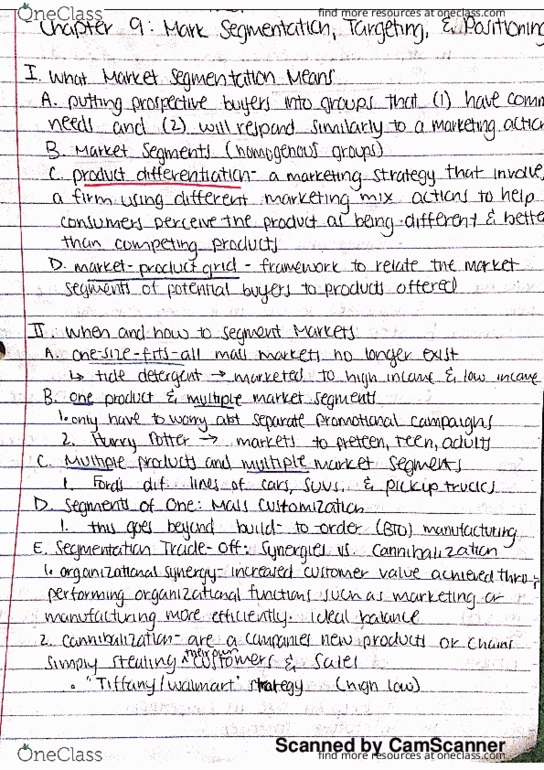 OneClass
find more resources at oneclass.com
Chapter 9: Mark Segmentation, Targeting, & Positioning
I. What Market Segmentation Means
A. putting prospective buyers into groups that (1) have comm
needs and (2) will respond similarly to a marketing action
B. Market Segments (homogenous groups)
C. product differentiation- a marketing strategy that involve
a firm using different marketing mix actions to help
consumers perceive the product as being different & bette
than competing products
D. market-product grid - framework to relate the market
segments of potential buyers to products offered
II. When and how to segment Markets
A. one-size-fits-all mass markets no longer exist
↳ tide detergent → marketed to high income & low income
B. one product & multiple market segments
1. only have to worry abt separate promotional campaigns
2. Harry Potter → markets to preteen, teen, adults
C. Multiple products and multiple market segments
1. Fords dif. lines of cars, SUVs, & pickup trucks
D. Segments of One: Mass Customization
1. this goes beyond build-to-order (BTO) manufacturing
E. Segmentation Trade-Off: Synergies vs. Cannibalization
1. organizational synergy- increased customer value achieved thru
performing organizational functions such as marketing or
manufacturing more efficiently. ideal balance
2. cannibalization- are a companies new products or chains
simply stealing their own customers & sales
• "Tiffany/Walmart" strategy (high low)
Scanned by CamScanner
OneClass
find more resources at oneclass.com